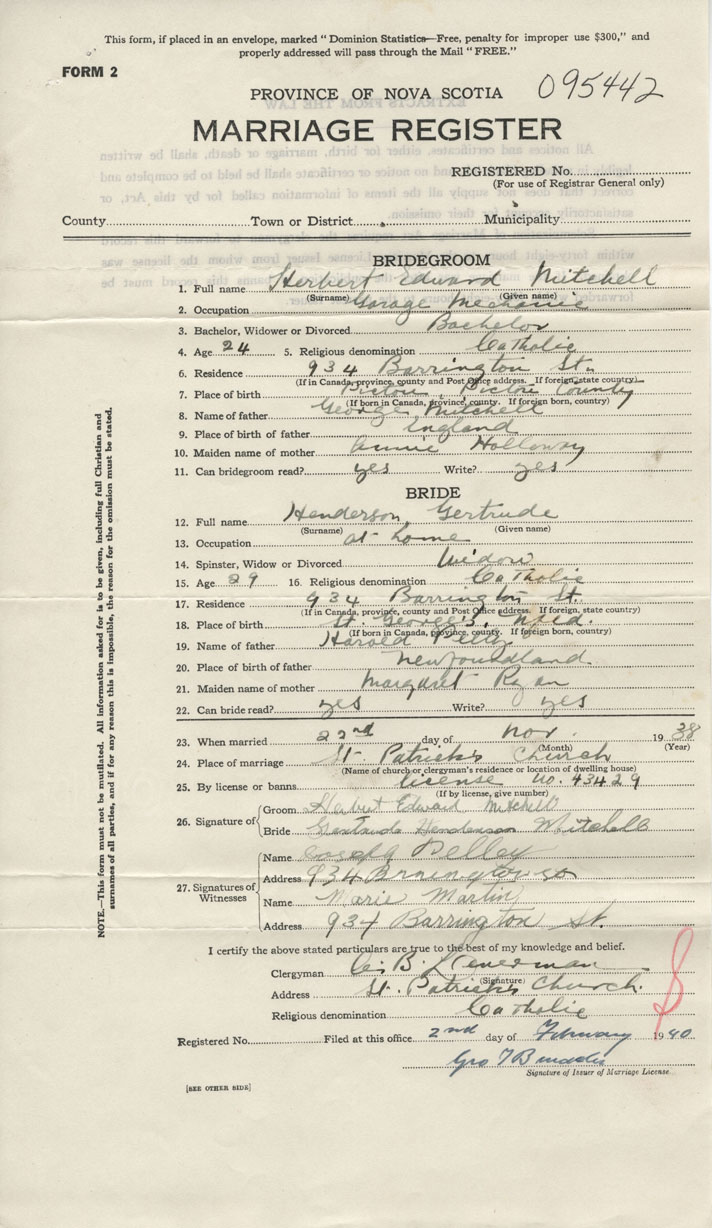 This form, if placed in an envelope, marked "Dominion Statistics—Free, penalty for improper use $300," and
properly addressed will pass through the Mail "FREE."
FORM 2
PROVINCE OF NOVA SCOTIA 095442
MARRIAGE REGISTER
REGISTERED No.
(For use of Registrar General only)
County Town or District Municipality
BRIDEGROOM
1. Full name Herbert Edward Mitchell
(Surname) (Given name)
2. Occupation Garage Mechanic
3. Bachelor, Widower or Divorced Bachelor
4. Age 24 5. Religious denomination Catholic
6. Residence 934 Barrington St.
(If in Canada, province, county and Post Office address. If foreign, state country)
7. Place of birth Pictou, Pictou County
(If born in Canada, province, county. If foreign born, country)
8. Name of father George Mitchell
9. Place of birth of father England
10. Maiden name of mother Annie Holloway
11. Can bridegroom read? yes Write? yes
BRIDE
12. Full name Henderson, Gertrude
(Surname) (Given name)
13. Occupation at home
14. Spinster, Widow or Divorced Widow
15. Age 29 16. Religious denomination Catholic
17. Residence 934 Barrington St.
(If in Canada, province, county and Post Office address. If foreign, state country)
18. Place of birth St. George's, Nfld.
(If born in Canada, province, county. If foreign born, country)
19. Name of father Harold
20. Place of birth of father Newfoundland
21. Maiden name of mother Margaret Ryan
22. Can bride read? yes Write? yes
23. When married 22nd day of Nov. 1938
(Month) (Year)
24. Place of marriage St. Patrick's Church
(Name of church or clergyman's residence or location of dwelling house)
25. By license or banns license No. 43429
(If by license, give number)
26. Signature of Groom Herbert Edward Mitchell
Bride Gertrude Henderson Mitchell
27. Signatures of Witnesses
Name Joseph Pelley
Address 934 St
Name Marie Martin
Address 934 Barrington St.
I certify the above stated particulars are true to the best of my knowledge and belief.
Clergyman B.
(Signature)
Address St. Patrick's Church.
Religious denomination Catholic
Registered No. Filed at this office 2nd day of February 1940
Geo
Signature of Issuer of Marriage License
[SEE OTHER SIDE]
NOTE.—This form must not be mutilated. All information asked for is to be given, including full Christian and
surnames of all parties, and if for any reason this is impossible, the reason for the omission must be stated.